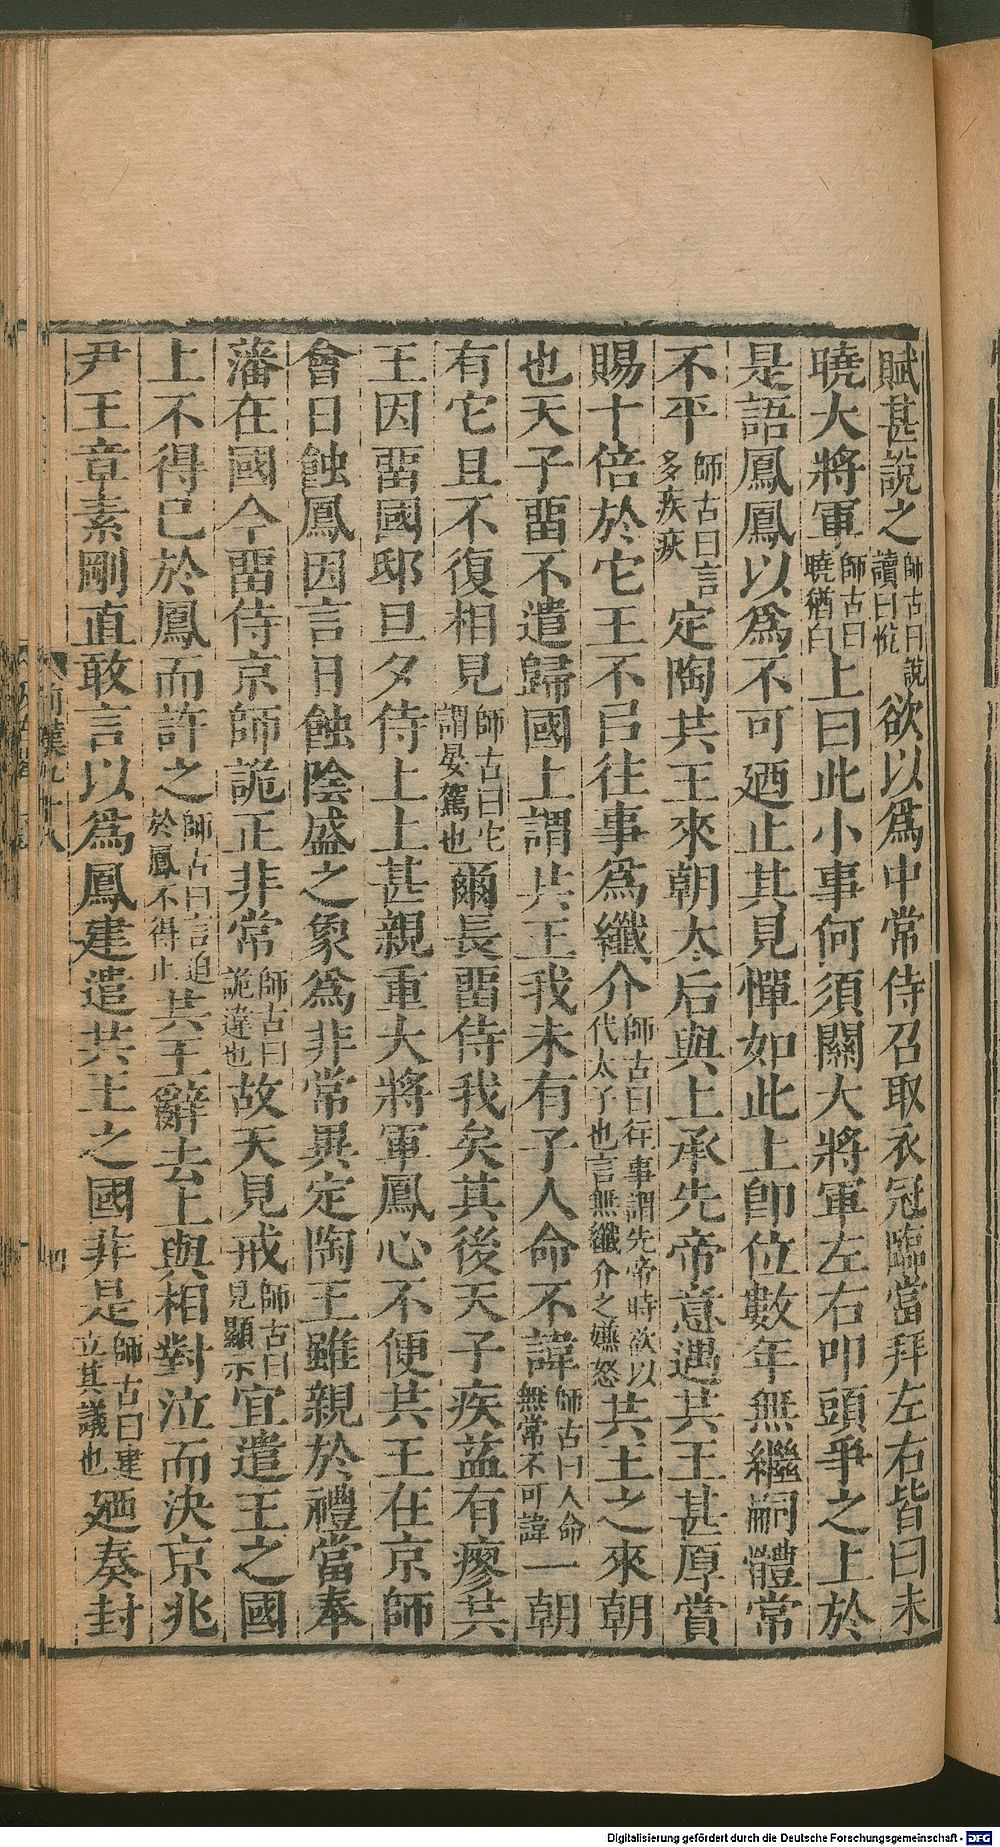 賦甚說之師古曰說讀曰悅欲以爲中常侍召取衣冠臨當拜左右皆曰未
曉大將軍師古曰曉猶白上曰此小事何須關大將軍左右叩頭爭之上於
是語鳳鳳以爲不可廼止其見憚如此上卽位數年無繼嗣體常
不平師古曰言多疾疢定陶共王來朝太后與上承先帝意遇共王甚厚賞
賜十倍於它王不㠯往事爲纖介師古曰往事謂先帝時欲以代太子也言無纖介之嫌怒共王之來朝
也天子畱不遣歸國上謂共王我未有子人命不諱師古曰人命無常不可諱一朝
有它且不復相見師古曰它謂晏駕也爾長畱侍我矣其後天子疾益有瘳共
王因畱國邸旦夕侍上上甚親重大將軍鳳心不便共王在京師
會日蝕鳳因言日蝕陰盛之象爲非常異定陶王雖親於禮當奉
藩在國今畱侍京師詭正非常師古曰詭違也故天見戒師古曰見顯示宜遣王之國
上不得已於鳳而許之師古曰言迫於鳳不得止共王辭去上與相對泣而決京兆
尹王章素剛直敢言以爲鳳建遣共王之國非是師古曰建立其議也廼奏封
前漢九十八
四
Digitalisierung gefördert durch die Deutsche Forschungsgemeinschaft - DFG